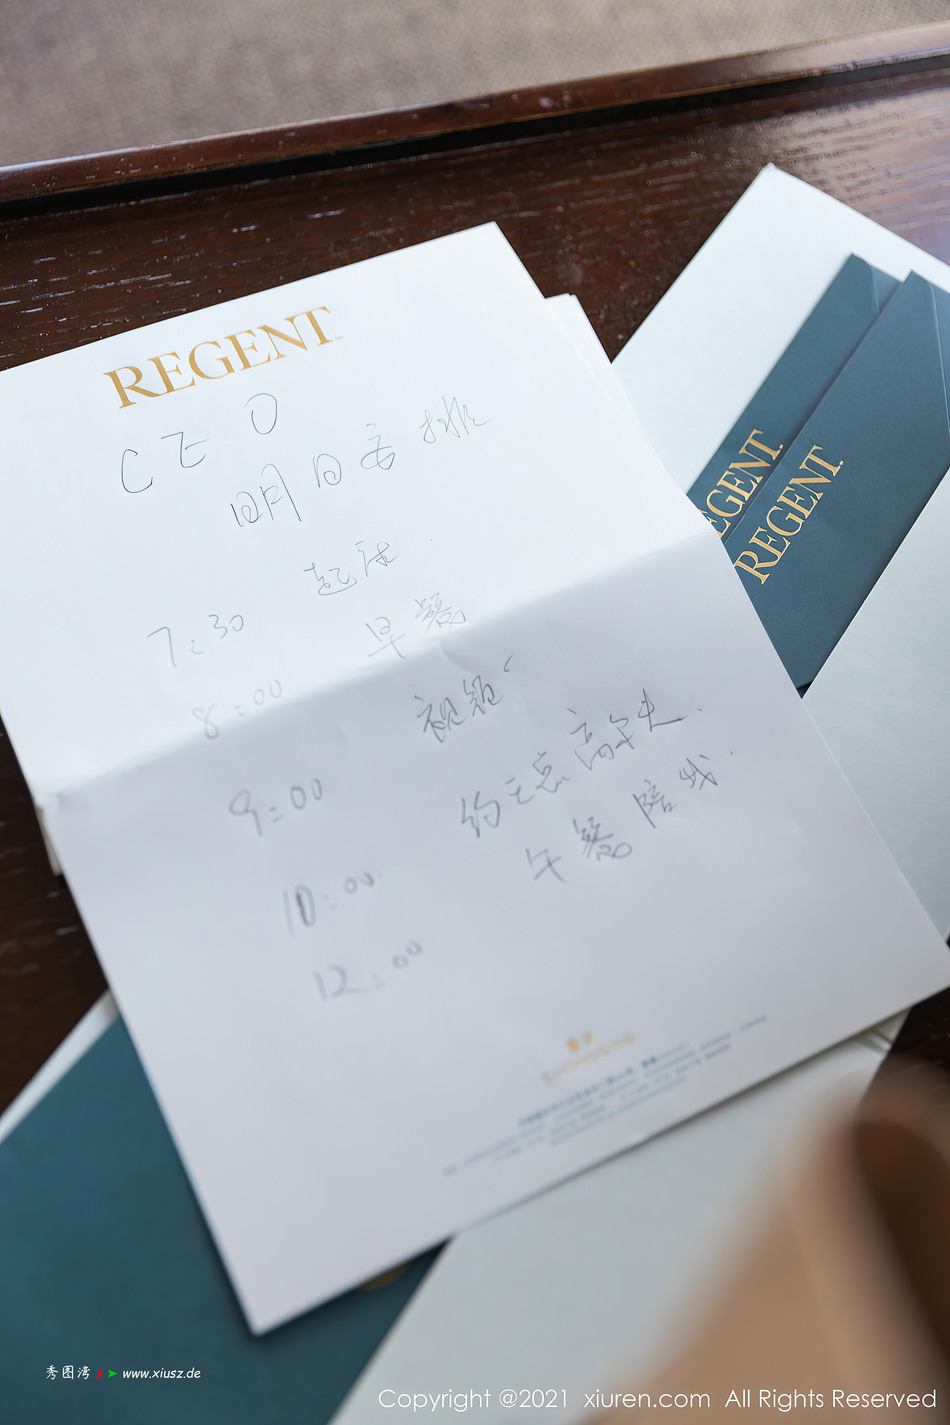 REGENT
CEO
明日安排
7:30 起床.
8:00 早餐
9:00 视频
10:00 约王总高尔夫.
12:00 午餐陪我.
REGENT
REGENT
秀图湾 x www.xiusz.de
Copyright @2021 xiuren.com All Rights Reserved